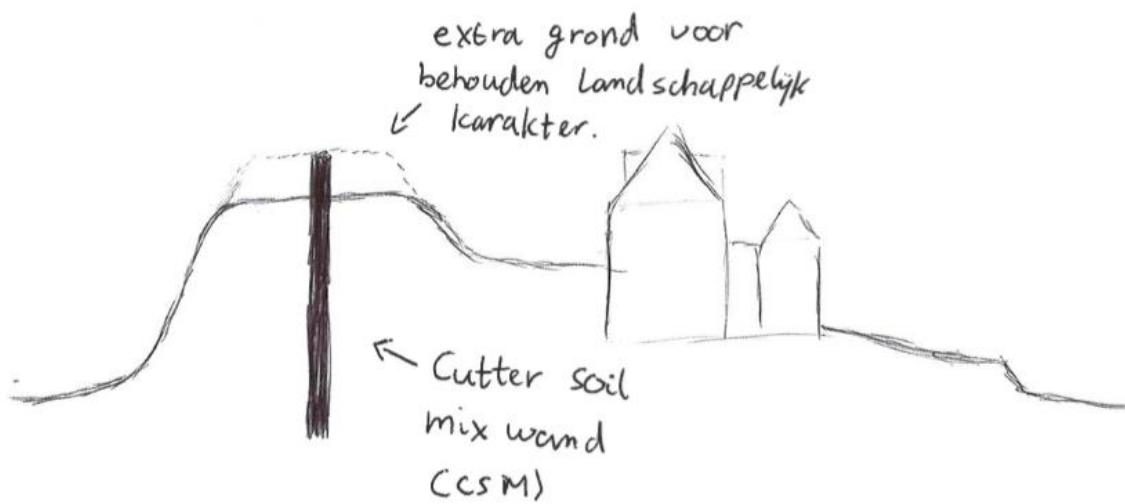 extra grond voor
behouden landschappelijk
karakter.
Cutter soil
mix wand
(CSM)